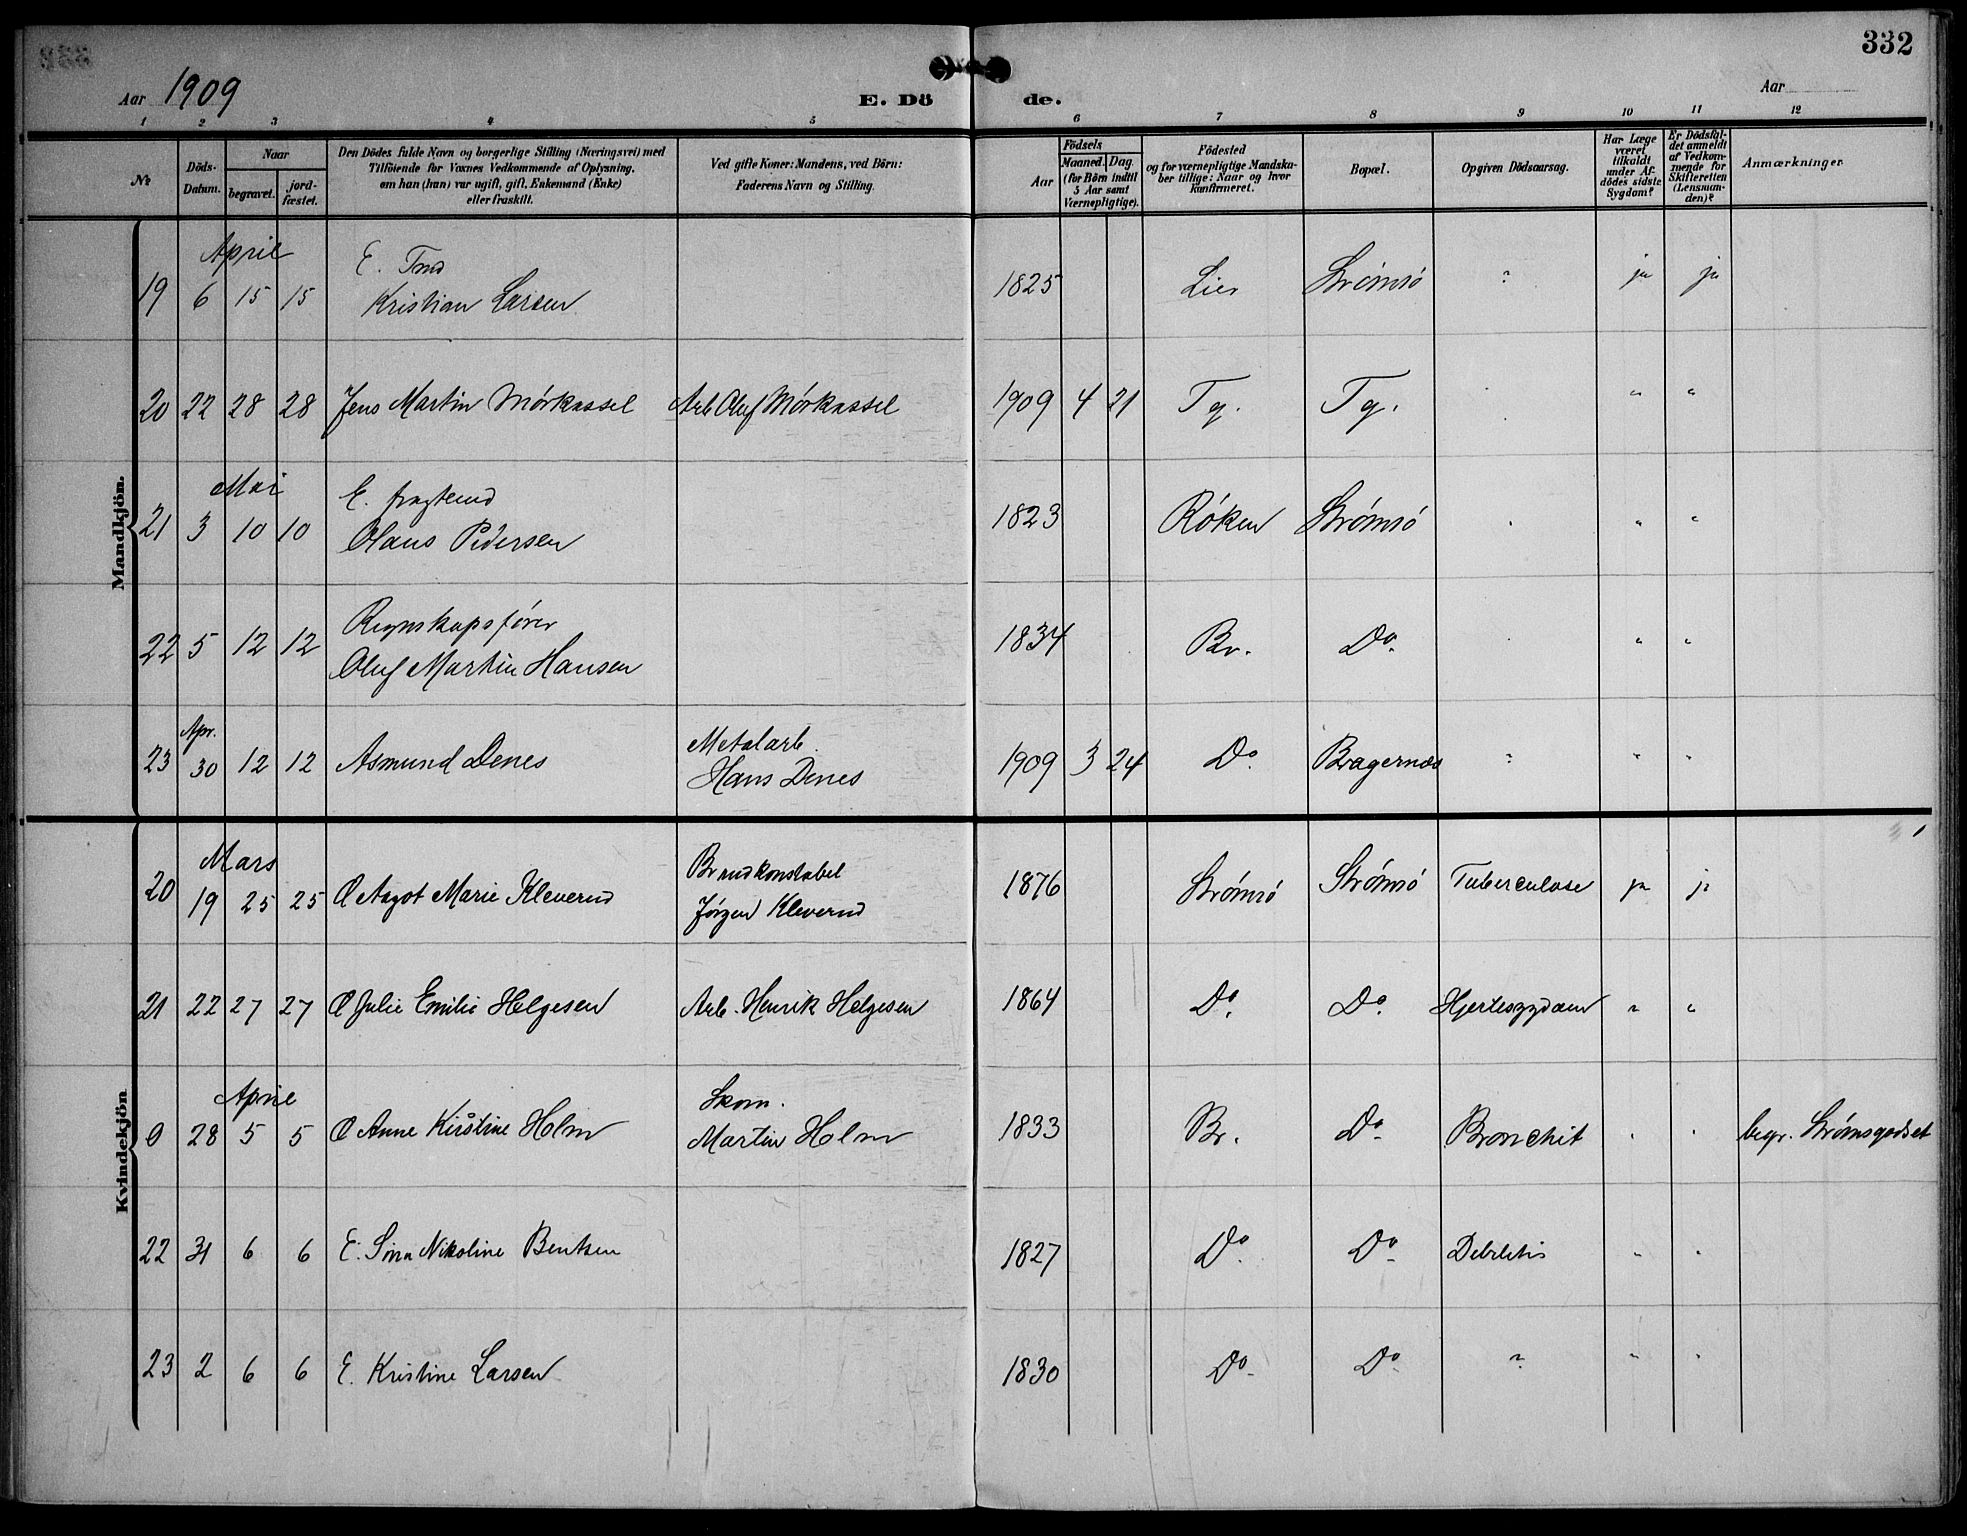 332
Aar 1909 E. Dö de. Aar
1 2 3 4 5 6 7 8 9 10 11 12
№
Döds-Datum.
Naar
begravet.
jordfæstet.
Den Dödes fulde Navn og borgerlige Stilling (Næringsvei) med
Tilföiende for Voxnes Vedkommende af Oplysning,
om han (hun) var ugift, gift, Enkemand (Enke)
eller fraskilt.
Ved gifte Koner: Mandens, ved Börn:
Faderens Navn og Stilling.
Födsels
Aar
Maaned. Dag.
(for Börn indtil
5 Aar samt
Værnepligtige).
Födested
og for værnepligtige Mandskaber tillige: Naar og hvor
konfirmeret.
Bopæl.
Opgiven Dödsaarsag.
Har Læge
været
tilkaldt
under Afdödes sidste
Sygdom?
Er Dödsfaldet anmeldt
af Vedkommende for
Skifteretten
(Lensmanden)?
Anmærkninger
Mandkjön.
April E.
19 6 15 15 Kristian Larsen 1825 Lier Strømsø ? ja ja
20 22 28 28 Jens Martin Mørkassel Arb. Oluf Mørkassel 1909 4 21 Tg. Tg. " "
Mai E.
21 3 10 10 Olaus Pedersen 1823 Røken Strømsø " "
Regnskapsfører
22 5 12 12 Oluf Martin Hansen 1834 Br. Do. " "
Apr. Metalarb.
23 30 12 12 Asmund Denes Hans Denes 1909 3 24 Do. Bragernæs ? " "
Kvindekjön
Mars Brandkonstabel
20 19 25 25 Aagot Marie Kleverud Jørgen Kleverud 1876 Strømsø Strømsø Tuberculose ja ja
21 22 27 27 Julie Emilie Helgesen Arb. Henrik Helgesen 1864 Do. Do. Hjertesygdom " "
April Skom.
0 28 5 5 Anne Kirstine Holm Martin Holm 1833 Br. Do. Bronchit " " begr. Strømsgodset
22 31 6 6 E. Nikoline Bentsen 1827 Do. Do. " "
23 2 6 6 E. Kristine Larsen 1830 Do. Do. ? " "